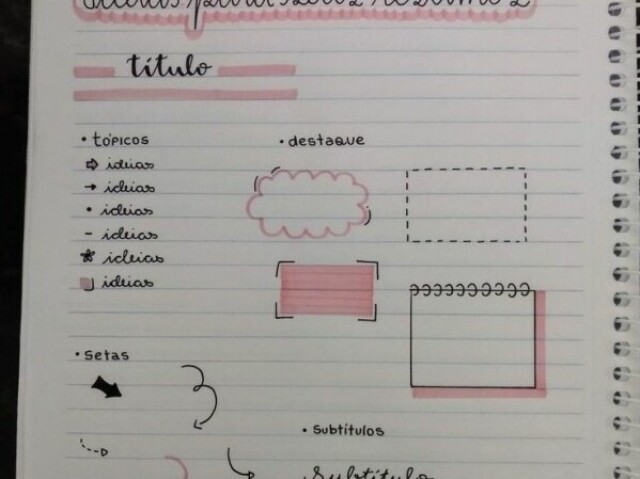 título
• tópicos
⇨ ideias
→ ideias
• ideias
- ideias
★ ideias
ideias
• destaque
• setas
• subtítulos
Subtítulo